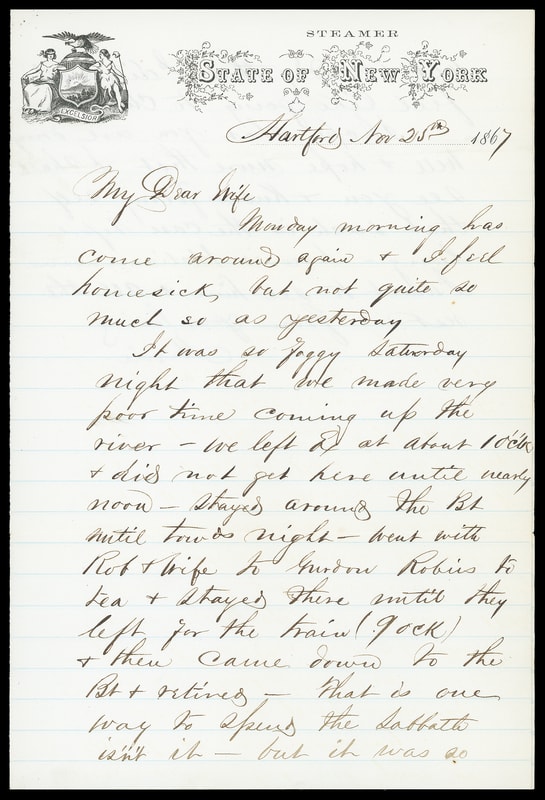 STEAMER
STATE OF NEW YORK
EXCELSIOR
Hartford Nov 25th 1867
My Dear Wife
Monday morning has
come around again + I feel
homesick, but not quite so
much so as yesterday
It was so foggy Saturday
night that we made very
poor time coming up the
river - we left at about 1 ock
+ did not get here until nearly
noon - stayed around the Bt
until towds night - went with
Rob + Wife to Gurdon Robins to
tea + stayed there until they
left for the train (9 ock)
+ then came down to the
Bt + retired - that is one
way to spend the Sabbath
isn't it - but it was so